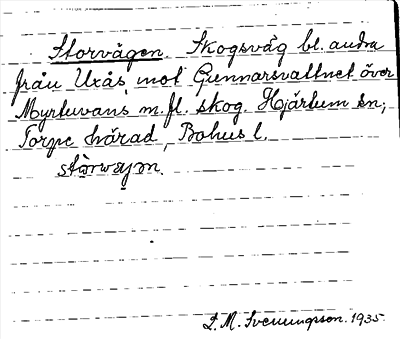 Storvägen. Skogsväg bl. andra
från Uxås, mot Gunnarsvattnet över
Myrtuvans m. fl. skog. Hjärtum sn;
Torpe härad, Bohus l.
L. M. Svenungsson. 1935.